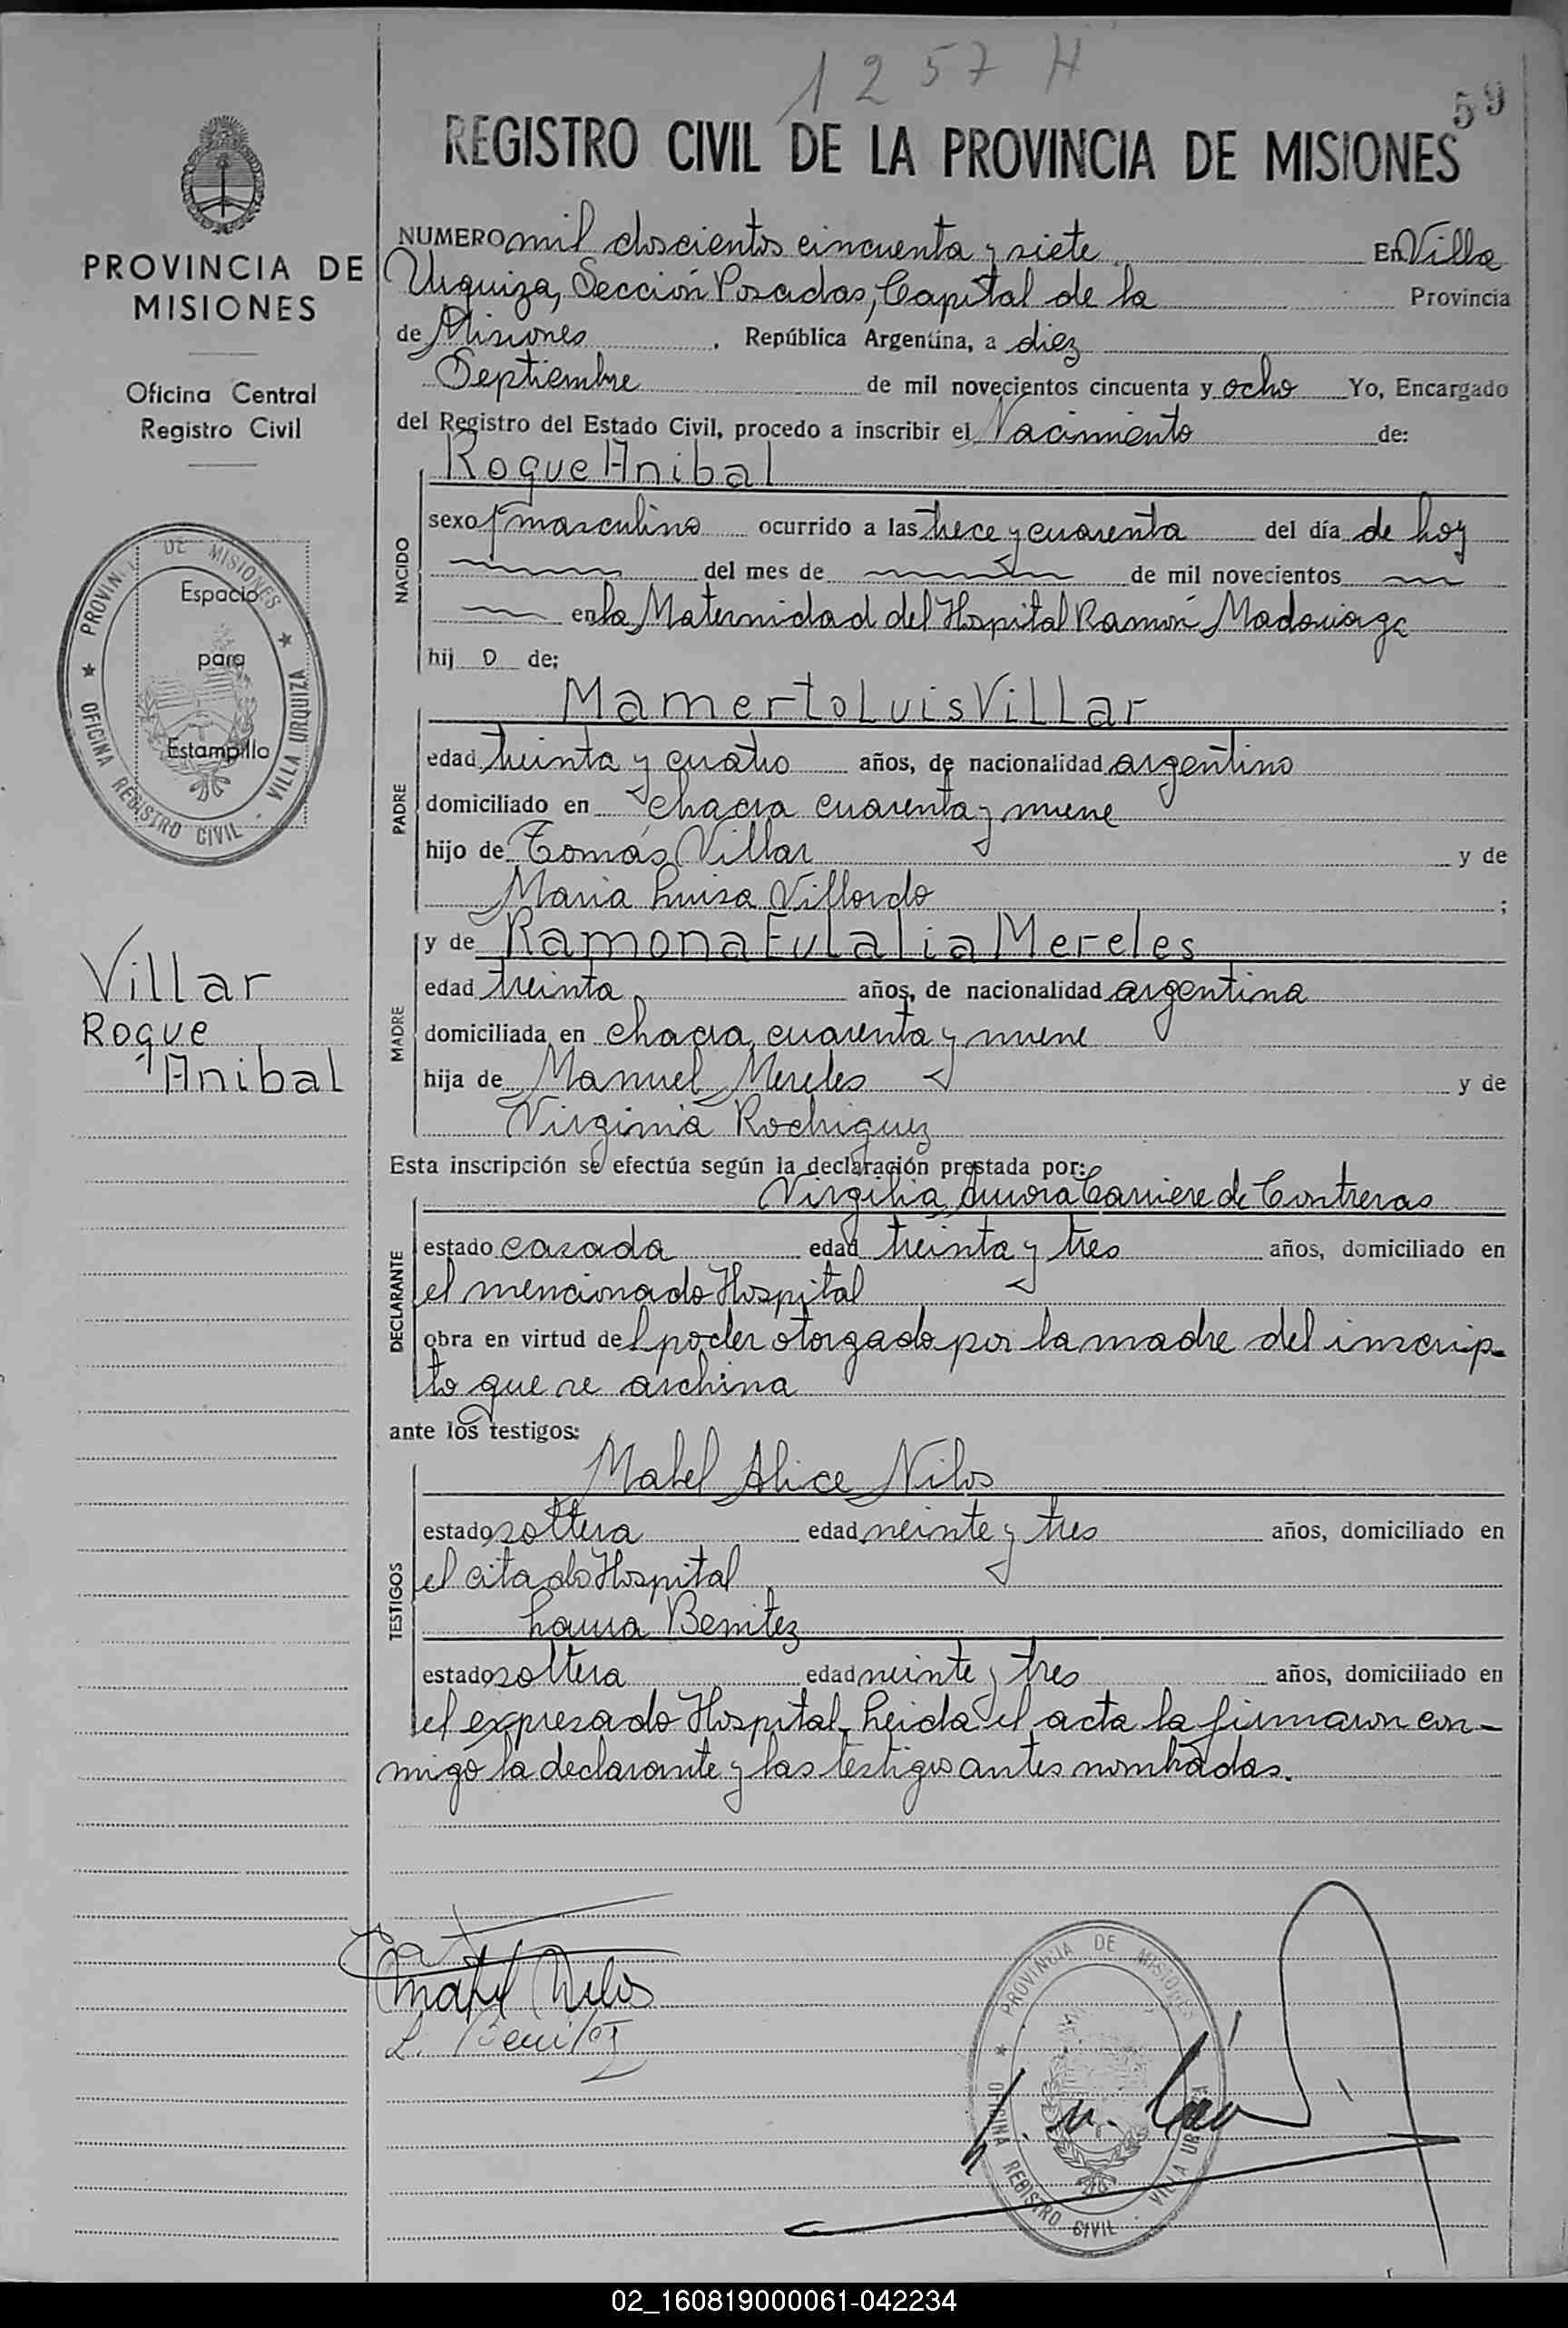 1257 H
59
REGISTRO CIVIL DE LA PROVINCIA DE MISIONES
PROVINCIA DE
MISIONES
Oficina Central
Registro Civil
PROVINCIA DE MISIONES ★ VILLA URQUIZA · OFICINA REGISTRO CIVIL ★
Espacio
para
Estampillo
Villar
Roque
Anibal
NUMERO mil doscientos cincuenta y siete En Villa
Urquiza, Sección Posadas, Capital de la Provincia
de Misiones, República Argentina, a diez
Septiembre de mil novecientos cincuenta y ocho Yo, Encargado
del Registro del Estado Civil, procedo a inscribir el Nacimiento de:
Roque Anibal
NACIDO
sexo masculino ocurrido a las trece y cuarenta del día de hoy
del mes de de mil novecientos
en la Maternidad del Hospital Ramón Madariaga
hij o de:
Mamerto Luis Villar
PADRE
edad treinta y cuatro años, de nacionalidad argentino
domiciliado en chacra cuarenta y nueve
hijo de Tomás Villar y de
Maria Luisa Villordo ;
MADRE
y de Ramona Eulalia Mereles
edad treinta años, de nacionalidad argentina
domiciliada en chacra cuarenta y nueve
hija de Manuel Mereles y de
Virginia Rodriguez
Esta inscripción se efectúa según la declaración prestada por:
Virgilia Aurora Carriere de Contreras
DECLARANTE
estado casada edad treinta y tres años, domiciliado en
el mencionado Hospital
obra en virtud del poder otorgado por la madre del inscrip-
to que se archiva
ante los testigos:
Mabel Alice Nilos
TESTIGOS
estado soltera edad veinte y tres años, domiciliado en
el citado Hospital
Laura Benitez
estado soltera edad veinte y tres años, domiciliado en
el expresado Hospital. Leida el acta la firmaron con-
migo la declarante y las testigos antes nombradas.
Mabel Nilos
L. Benitez
PROVINCIA DE MISIONES ★ OFICINA REGISTRO CIVIL · VILLA URQUIZA
02_160819000061-042234